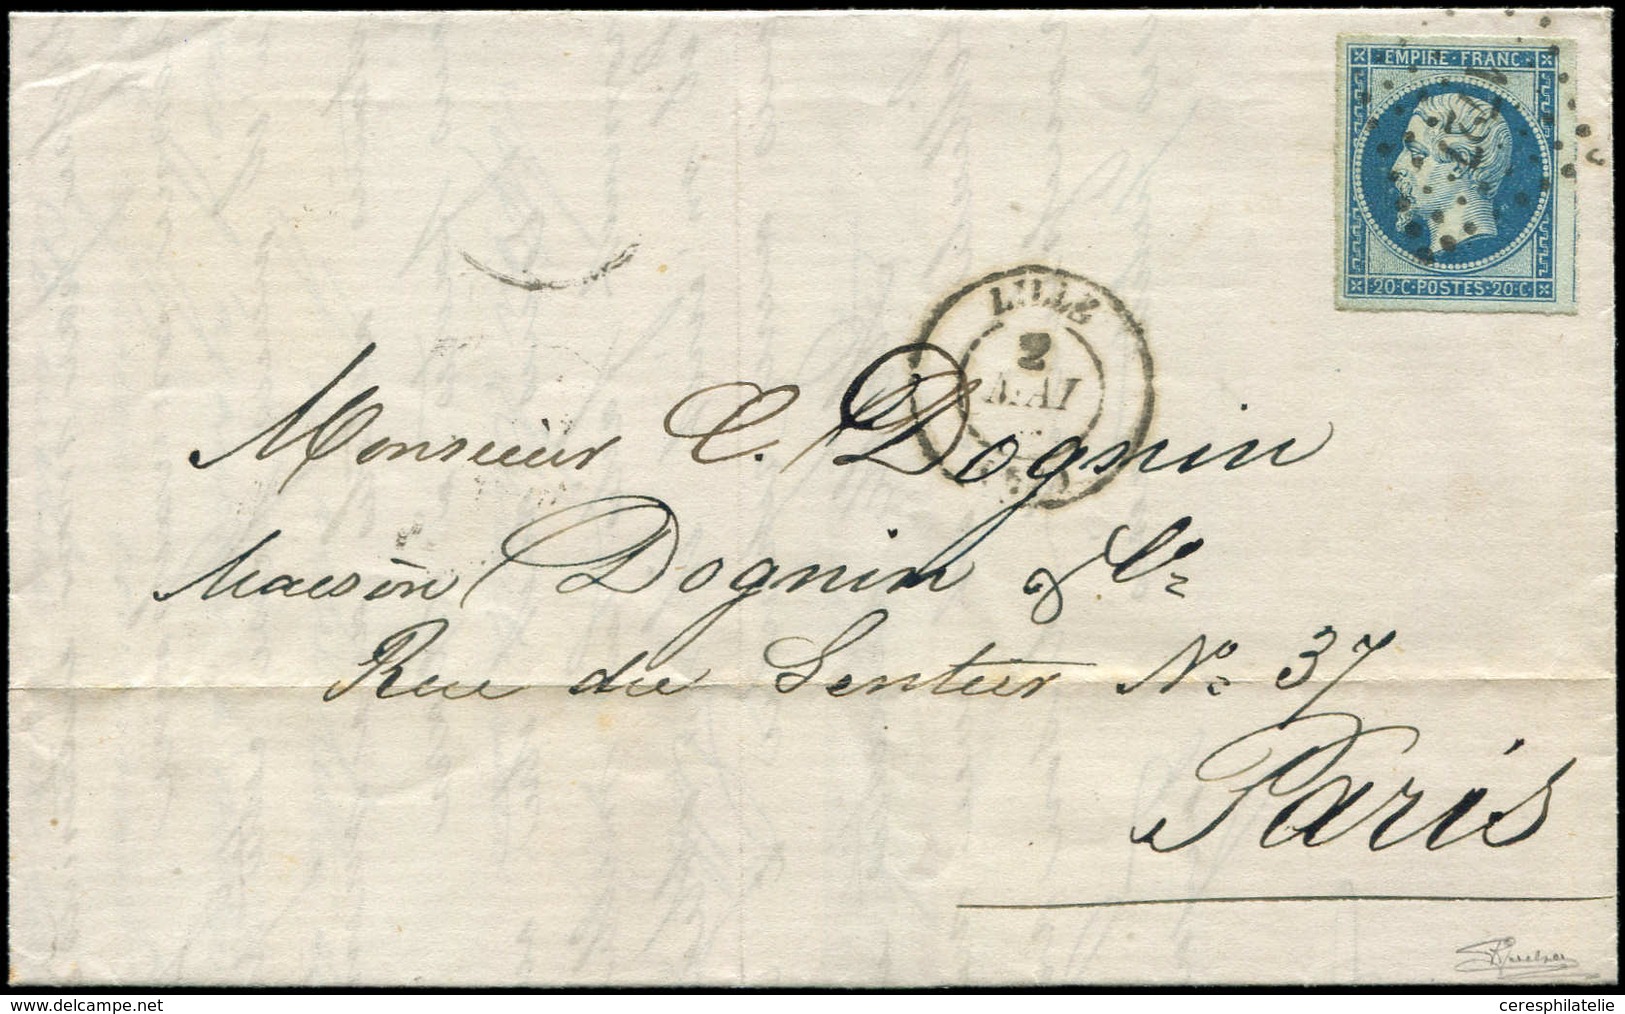 EMPIRE · FRANC
20·C·POSTES·20·C
LILLE
2
MAI
Monsieur C. Dognin
Maison Dognin & Cie
Rue du Sentier No 37
Paris
www.delcampe.net
ceresphilatelie